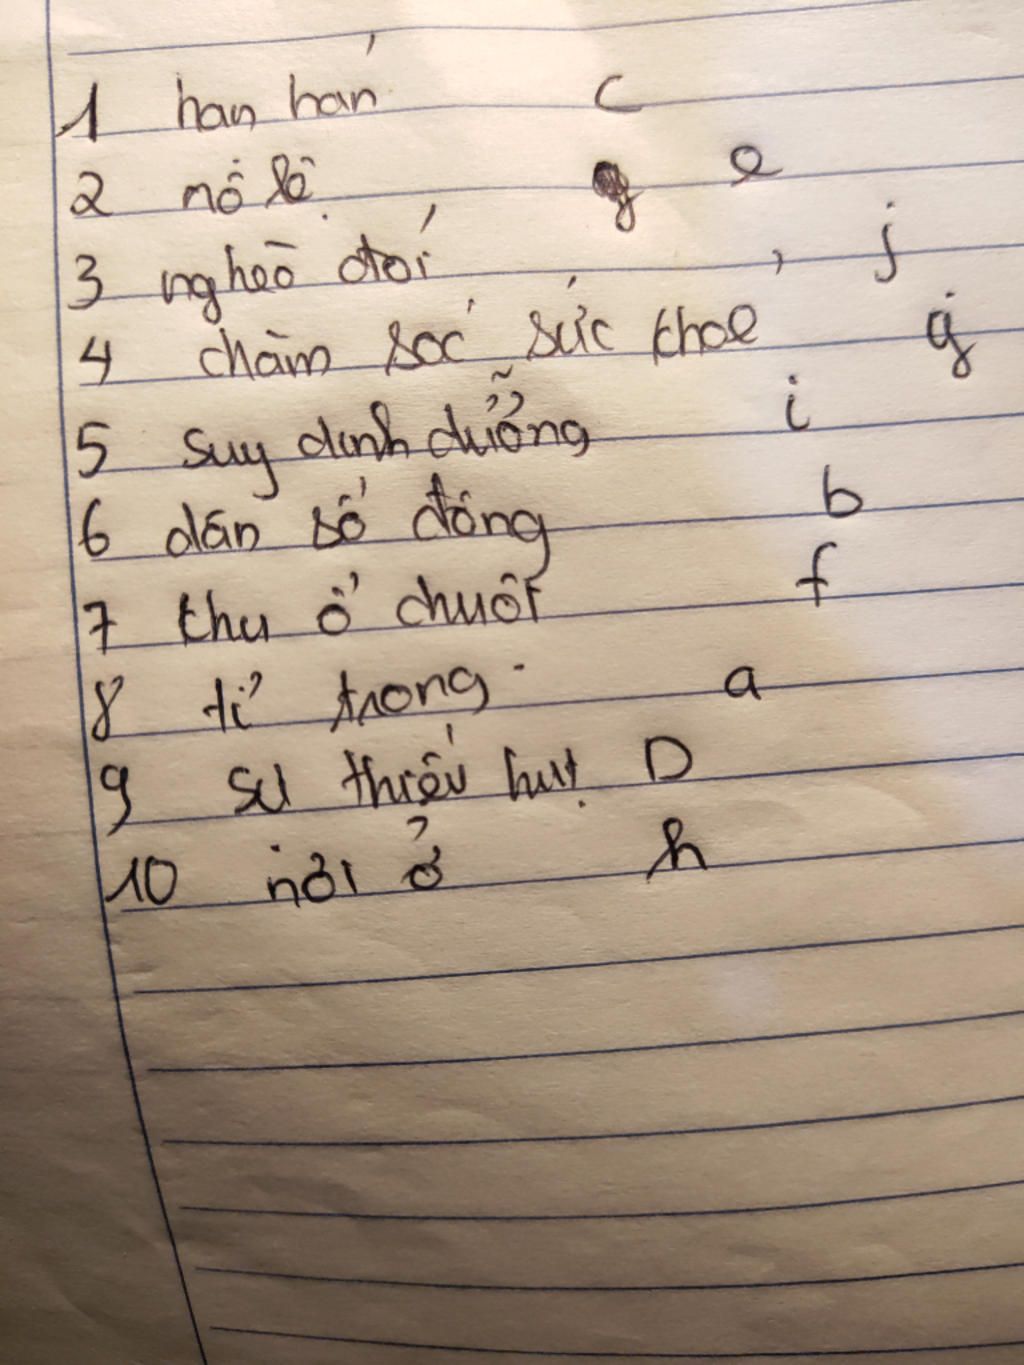 1 han hán c
2 nô lệ e
3 nghèo đói j
4 chăm sóc sức khoẻ g
5 suy dinh dưỡng i
6 dân số đông b
7 khu ổ chuột f
8 tỉ trọng a
9 sự thiếu hụt D
10 nơi ở h